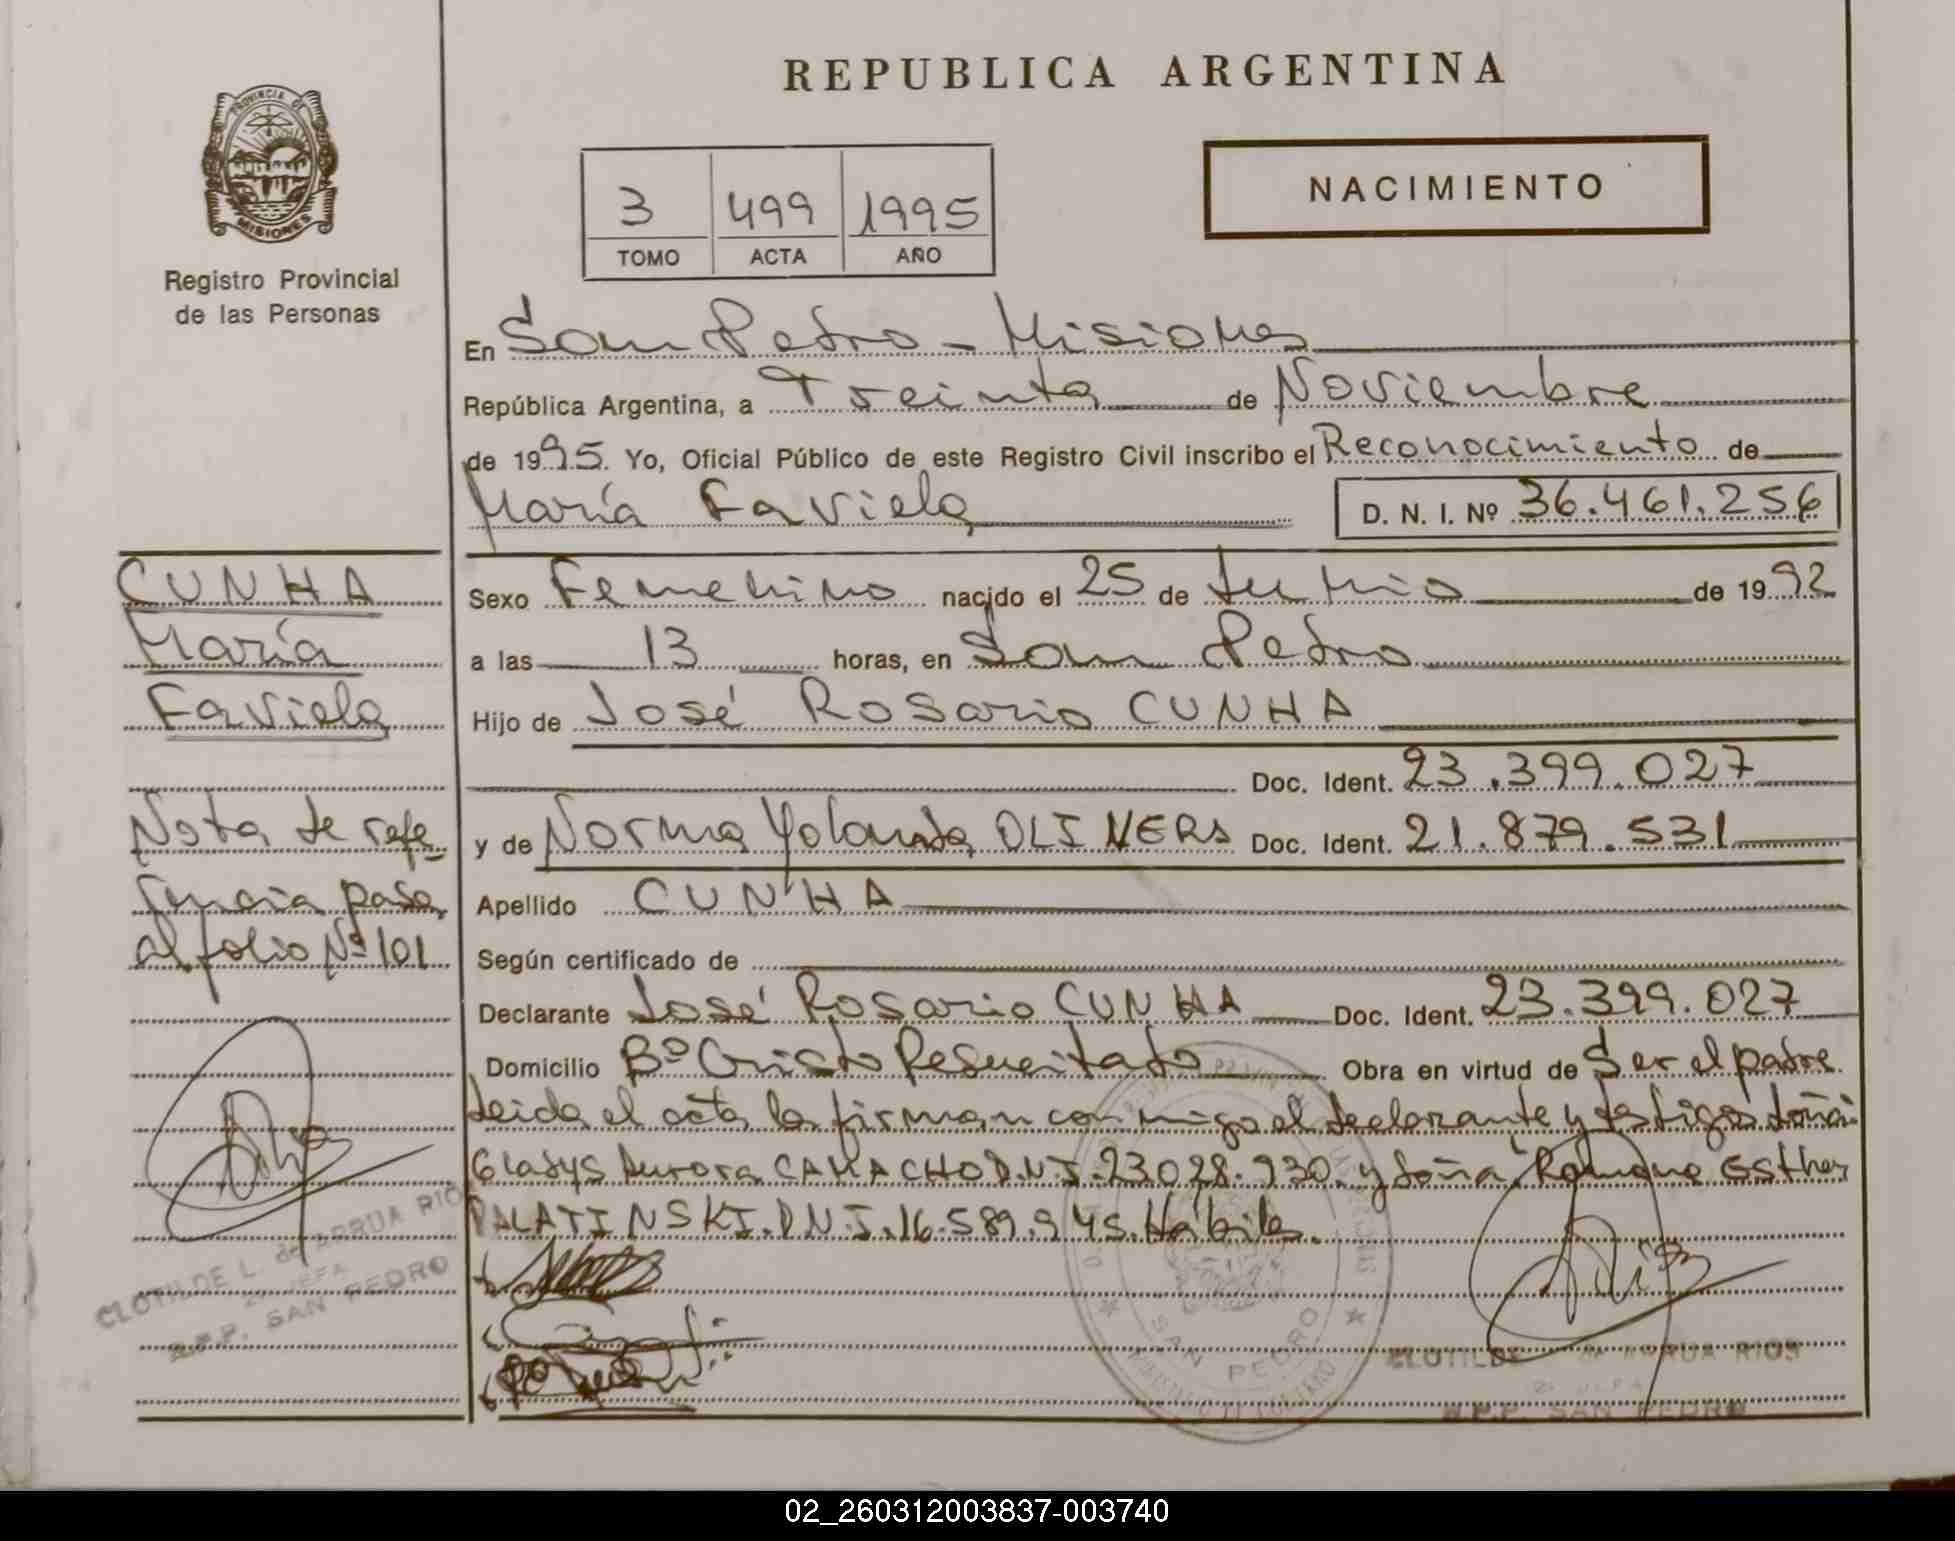 REPUBLICA ARGENTINA
PROVINCIA DE
MISIONES
Registro Provincial
de las Personas
3 499 1995
TOMO ACTA AÑO
NACIMIENTO
En San Pedro - Misiones
República Argentina, a Treinta de Noviembre
de 1995. Yo, Oficial Público de este Registro Civil inscribo el Reconocimiento de
María Faviela D. N. I. Nº 36.461.256
CUNHA
María
Faviela
Nota de refe
rencia pasa
al folio Nº 101
CLOTILDE L. de ARRUA RIOS
2ª JEFA
R.P.P. SAN PEDRO
Sexo Femenino nacido el 25 de Junio de 1992
a las 13 horas, en San Pedro
Hijo de José Rosario CUNHA
Doc. Ident. 23.399.027
y de Norma Yolanda OLIVERA Doc. Ident. 21.879.531
Apellido CUNHA
Según certificado de
Declarante José Rosario CUNHA Doc. Ident. 23.399.027
Domicilio Bº Cristo Resucitado Obra en virtud de Ser el padre
Leida el acta la firman conmigo el declarante y testigos doña
Gladys Aurora CAMACHO D.N.I. 23.028.930. y doña Romana Esther
PALATINSKI. D.N.I. 16.589.945. Hábiles.
SAN PEDRO
CLOTILDE ARRUA RIOS
2ª JEFA
R.P.P. SAN PEDRO
02_260312003837-003740